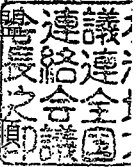 議連全国
連絡会議
盟長之印